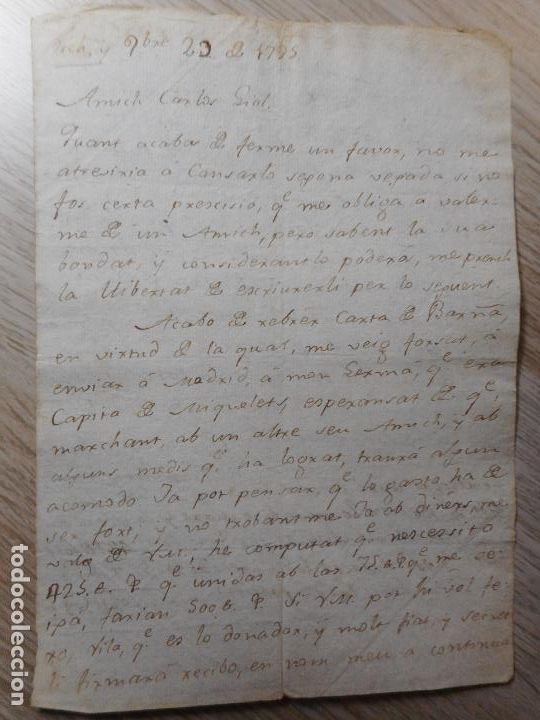 y 9bre 20 de 1795
Amich Carlos Giol.
Quant acabas de ferme un favor, no me
atreviria a Cansarlo segona vegada si no
fos certa prescisio, qe me obliga a valer-
me de un Amich, pero sabent la sua
bondat, y considerantlo poderà, me prench
la llibertat de escriurerli per lo seguent.
Acabo de rebrer Carta de Barna,
en virtud de la qual, me veig forsat, á
enviar á Madrid, á mon Germa, qe era
Capita de Miquelets, esperansat de qe,
marchant, ab un altre seu Amich, y ab
alguns medis qe ha lograt, traurá algun
acomodo Ja pot pensar, qe lo gasto, ha de
ser fort, y no trobantme Ja ab diners,
de Vm, he computat qe nescessito
425. qe unidas ab las 75. qe me
farian 500. Si Vm. por
Vila, qe es lo donador, y molt fiat, y secret
li firmará recibo, en nom meu a continua
todocoleccion